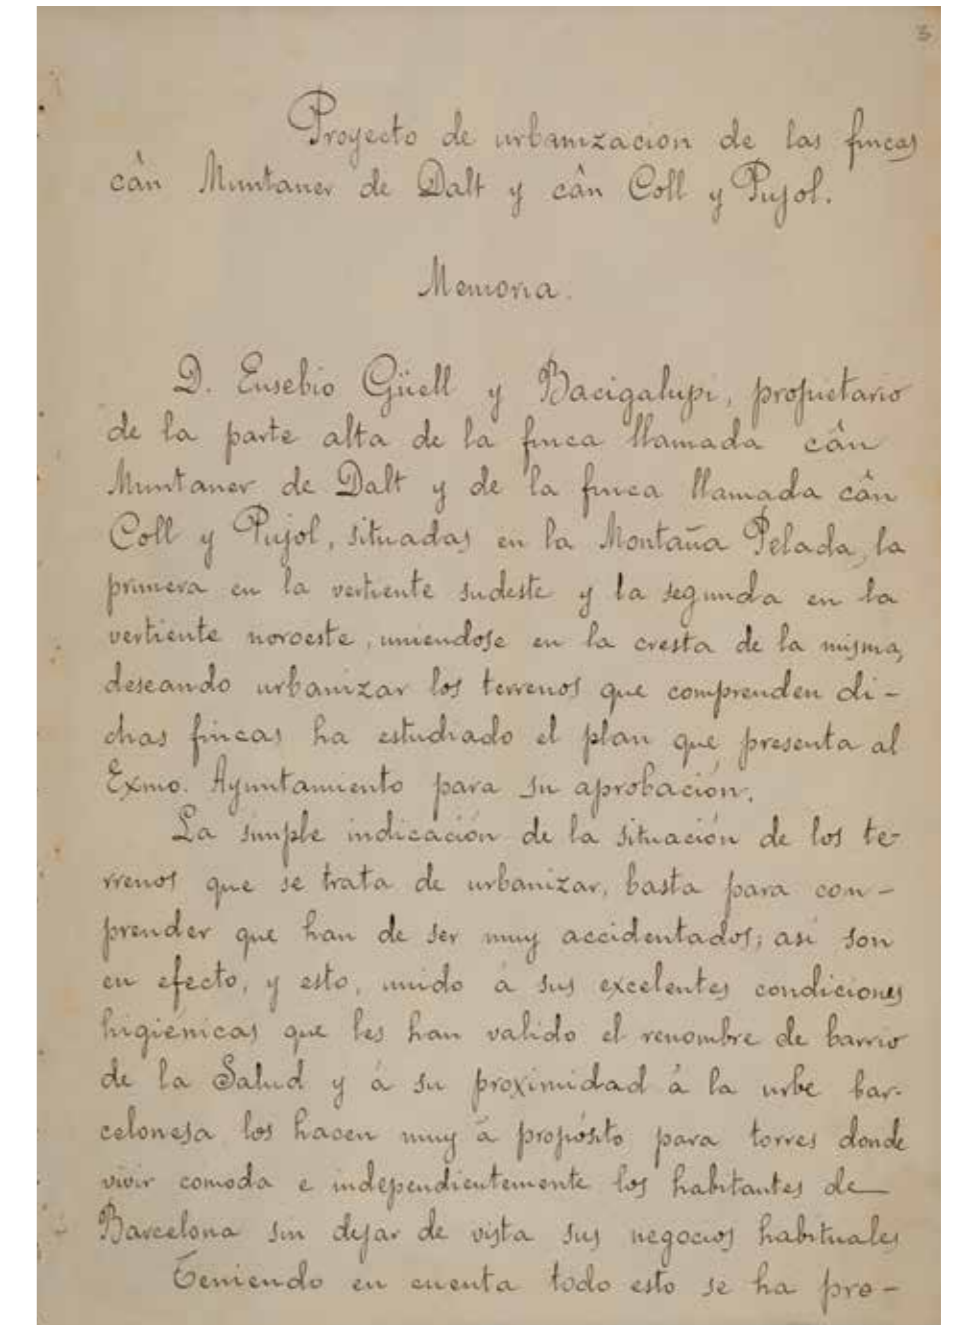 3
Proyecto de urbanizacion de las fincas
cân Muntaner de Dalt y cân Coll y Pujol.
Memoria.
D. Eusebio Güell y Bacigalupi, propietario
de la parte alta de la finca llamada cân
Muntaner de Dalt y de la finca llamada cân
Coll y Pujol, situadas en la Montaña Pelada, la
primera en la vertiente sudeste y la segunda en la
vertiente noroeste, uniendose en la cresta de la misma,
deseando urbanizar los terrenos que comprenden di-
chas fincas ha estudiado el plan que presenta al
Exmo. Ayuntamiento para su aprobación.
La simple indicación de la situación de los te-
rrenos que se trata de urbanizar, basta para com-
prender que han de ser muy accidentados; asi son
en efecto, y esto, unido á sus excelentes condiciones
higiénicas que les han valido el renombre de barrio
de la Salud y á su proximidad á la urbe bar-
celonesa los hacen muy á propósito para torres donde
vivir comoda e independientemente los habitantes de
Barcelona sin dejar de vista sus negocios habituales
Teniendo en cuenta todo esto se ha pro-